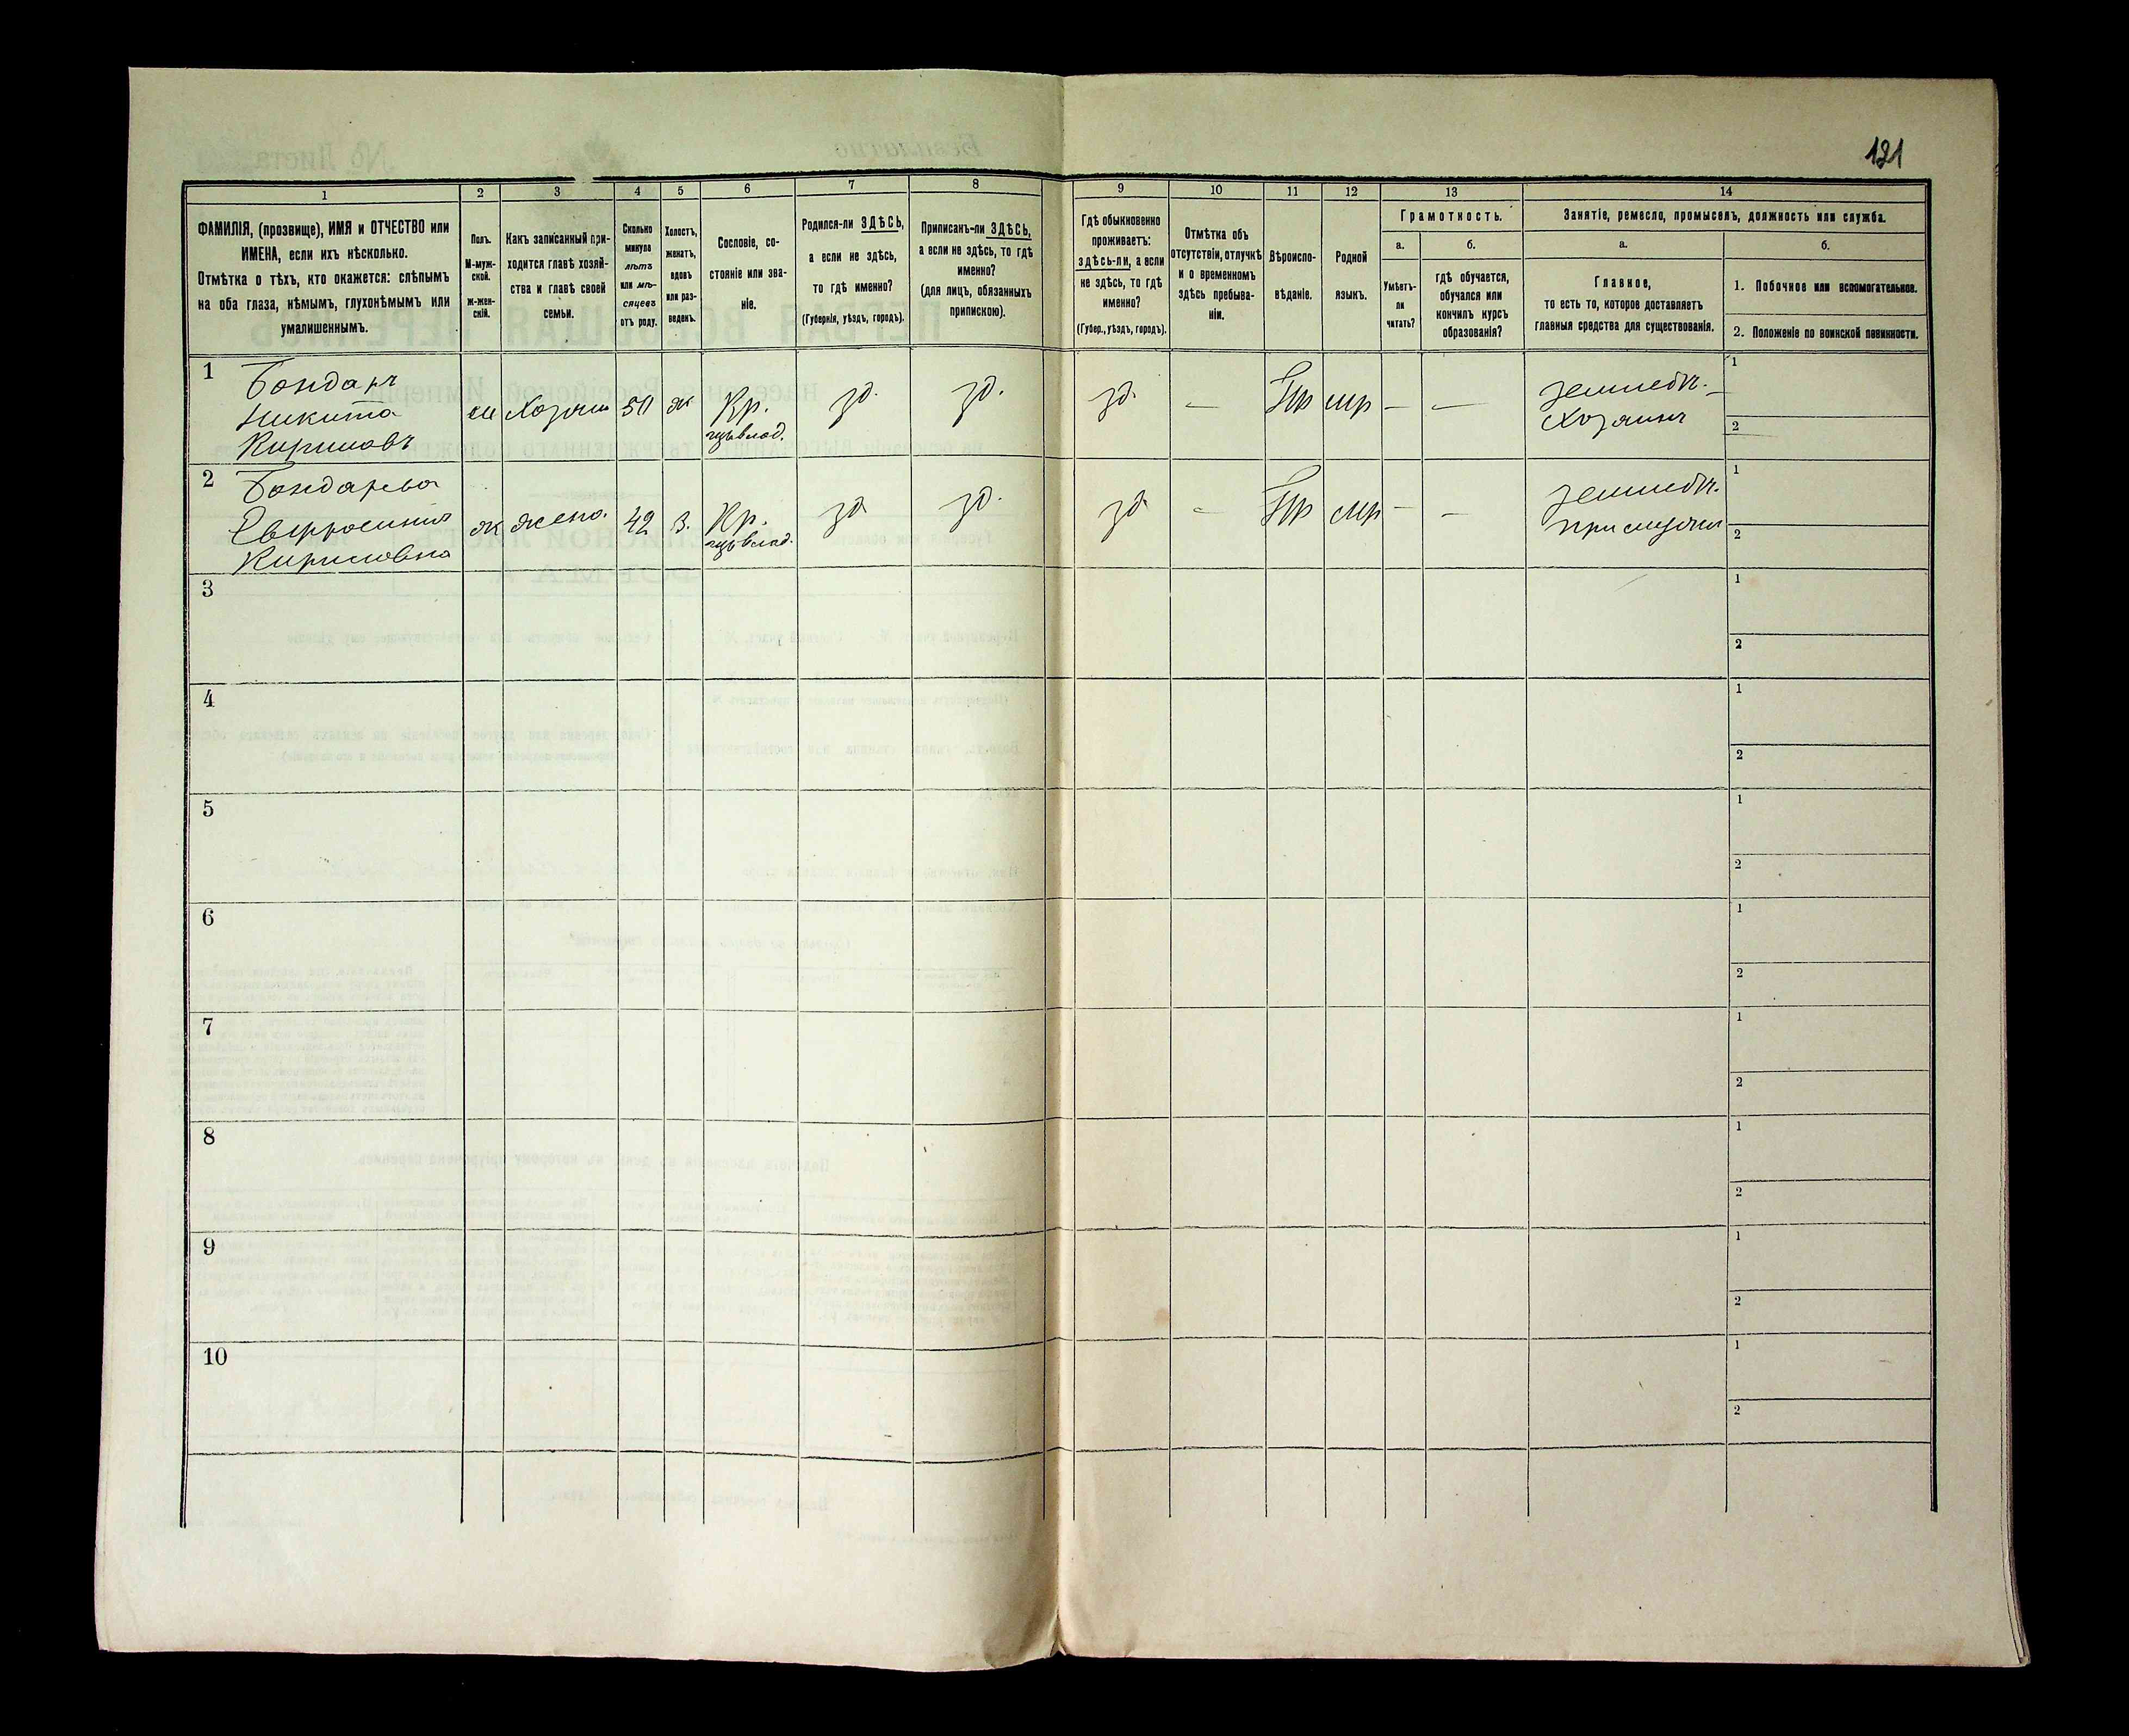 121
1
2
3
4
5
6
7
8
9
10
11
12
13
14
ФАМИЛІЯ, (прозвище), ИМЯ и ОТЧЕСТВО или
ИМЕНА, если ихъ нѣсколько.
Отмѣтка о тѣхъ, кто окажется: слѣпымъ
на оба глаза, нѣмымъ, глухонѣмымъ или
умалишеннымъ.
Полъ.
М-муж-
ской.
Ж-жен-
скій.
Какъ записанный при-
ходится главѣ хозяй-
ства и главѣ своей
семьи.
Сколько
минуло
лѣтъ
или мѣ-
сяцевъ
отъ роду.
Холостъ,
женатъ,
вдовъ
или раз-
веденъ.
Сословіе, со-
стояніе или зва-
ніе.
Родился-ли ЗДѢСЬ,
а если не здѣсь,
то гдѣ именно?
(Губернія, уѣздъ, городъ).
Приписанъ-ли ЗДѢСЬ,
а если не здѣсь, то гдѣ
именно?
(для лицъ, обязанныхъ
припискою).
Гдѣ обыкновенно
проживаетъ:
здѣсь-ли, а если
не здѣсь, то гдѣ
именно?
(Губер., уѣздъ, городъ).
Отмѣтка объ
отсутствіи, отлучкѣ
и о временномъ
здѣсь пребыва-
ніи.
Вѣроиспо-
вѣданіе.
Родной
языкъ.
Грамотность.
а.
Умѣетъ-
ли
читать?
б.
гдѣ обучается,
обучался или
кончилъ курсъ
образованія?
Занятіе, ремесло, промыселъ, должность или служба.
а.
Главное,
то есть то, которое доставляетъ
главныя средства для существованія.
б.
1. Побочное или вспомогательное.
2. Положеніе по воинской повинности.
1
Бондарь
Никита
Кириловъ
м
Хозяин
50
ж
Кр.
зд.
зд.
зд.
—
Пр
мр
—
—
земледѣл.
Хозяинъ
1
2
2
Бондарева
Евфросинія
Кириловна
ж
жена
42
з.
Кр.
зд
зд.
зд
—
Пр
мр
—
—
земледѣл.
при мужѣ
1
2
3
1
2
4
1
2
5
1
2
6
1
2
7
1
2
8
1
2
9
1
2
10
1
2